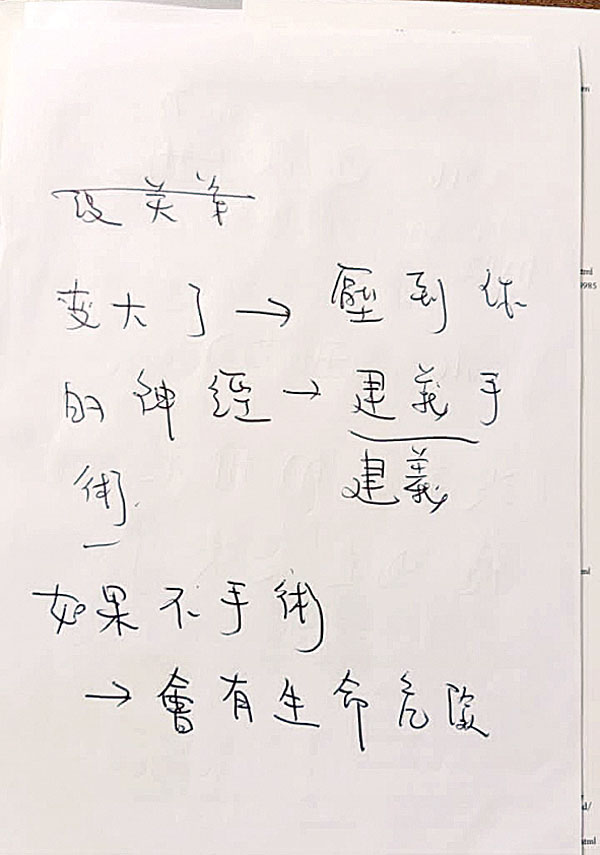 变大了→壓到你
的神經→建義手
建義
術.
如果不手術
→會有生命危險